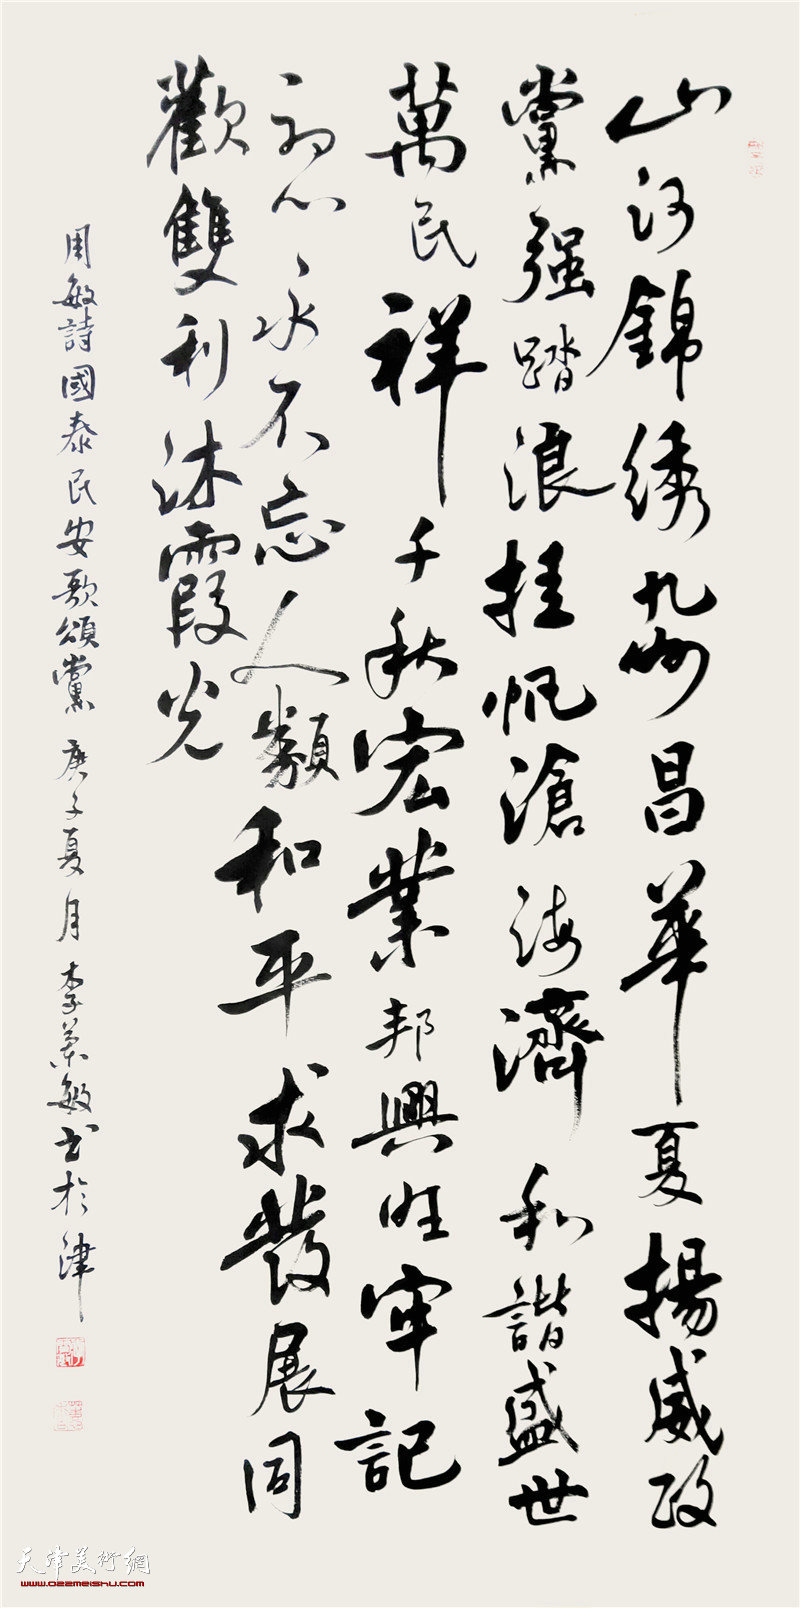 山河錦绣九州昌華夏揚威政
黨强踏浪挂帆滄海濟和諧盛世
萬民祥千秋宏業邦興旺牢記
初心永不忘人類和平求發展同
歡雙利沐霞光
周敏詩國泰民安歌頌黨 庚子夏月李敏书於津
天津美術網
www.022meishu.com